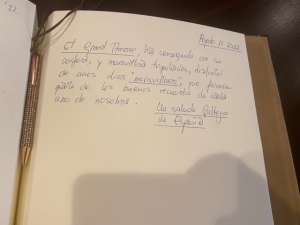 '22
Agosto 11-2022
El Grand Princess, ha conseguido con su
confort, y maravillosa tripulación, disfrutar
de unos días "maravillosos", que formarán
parte de los buenos recuerdos de cada
uno de nosotros.
Un saludo
de España